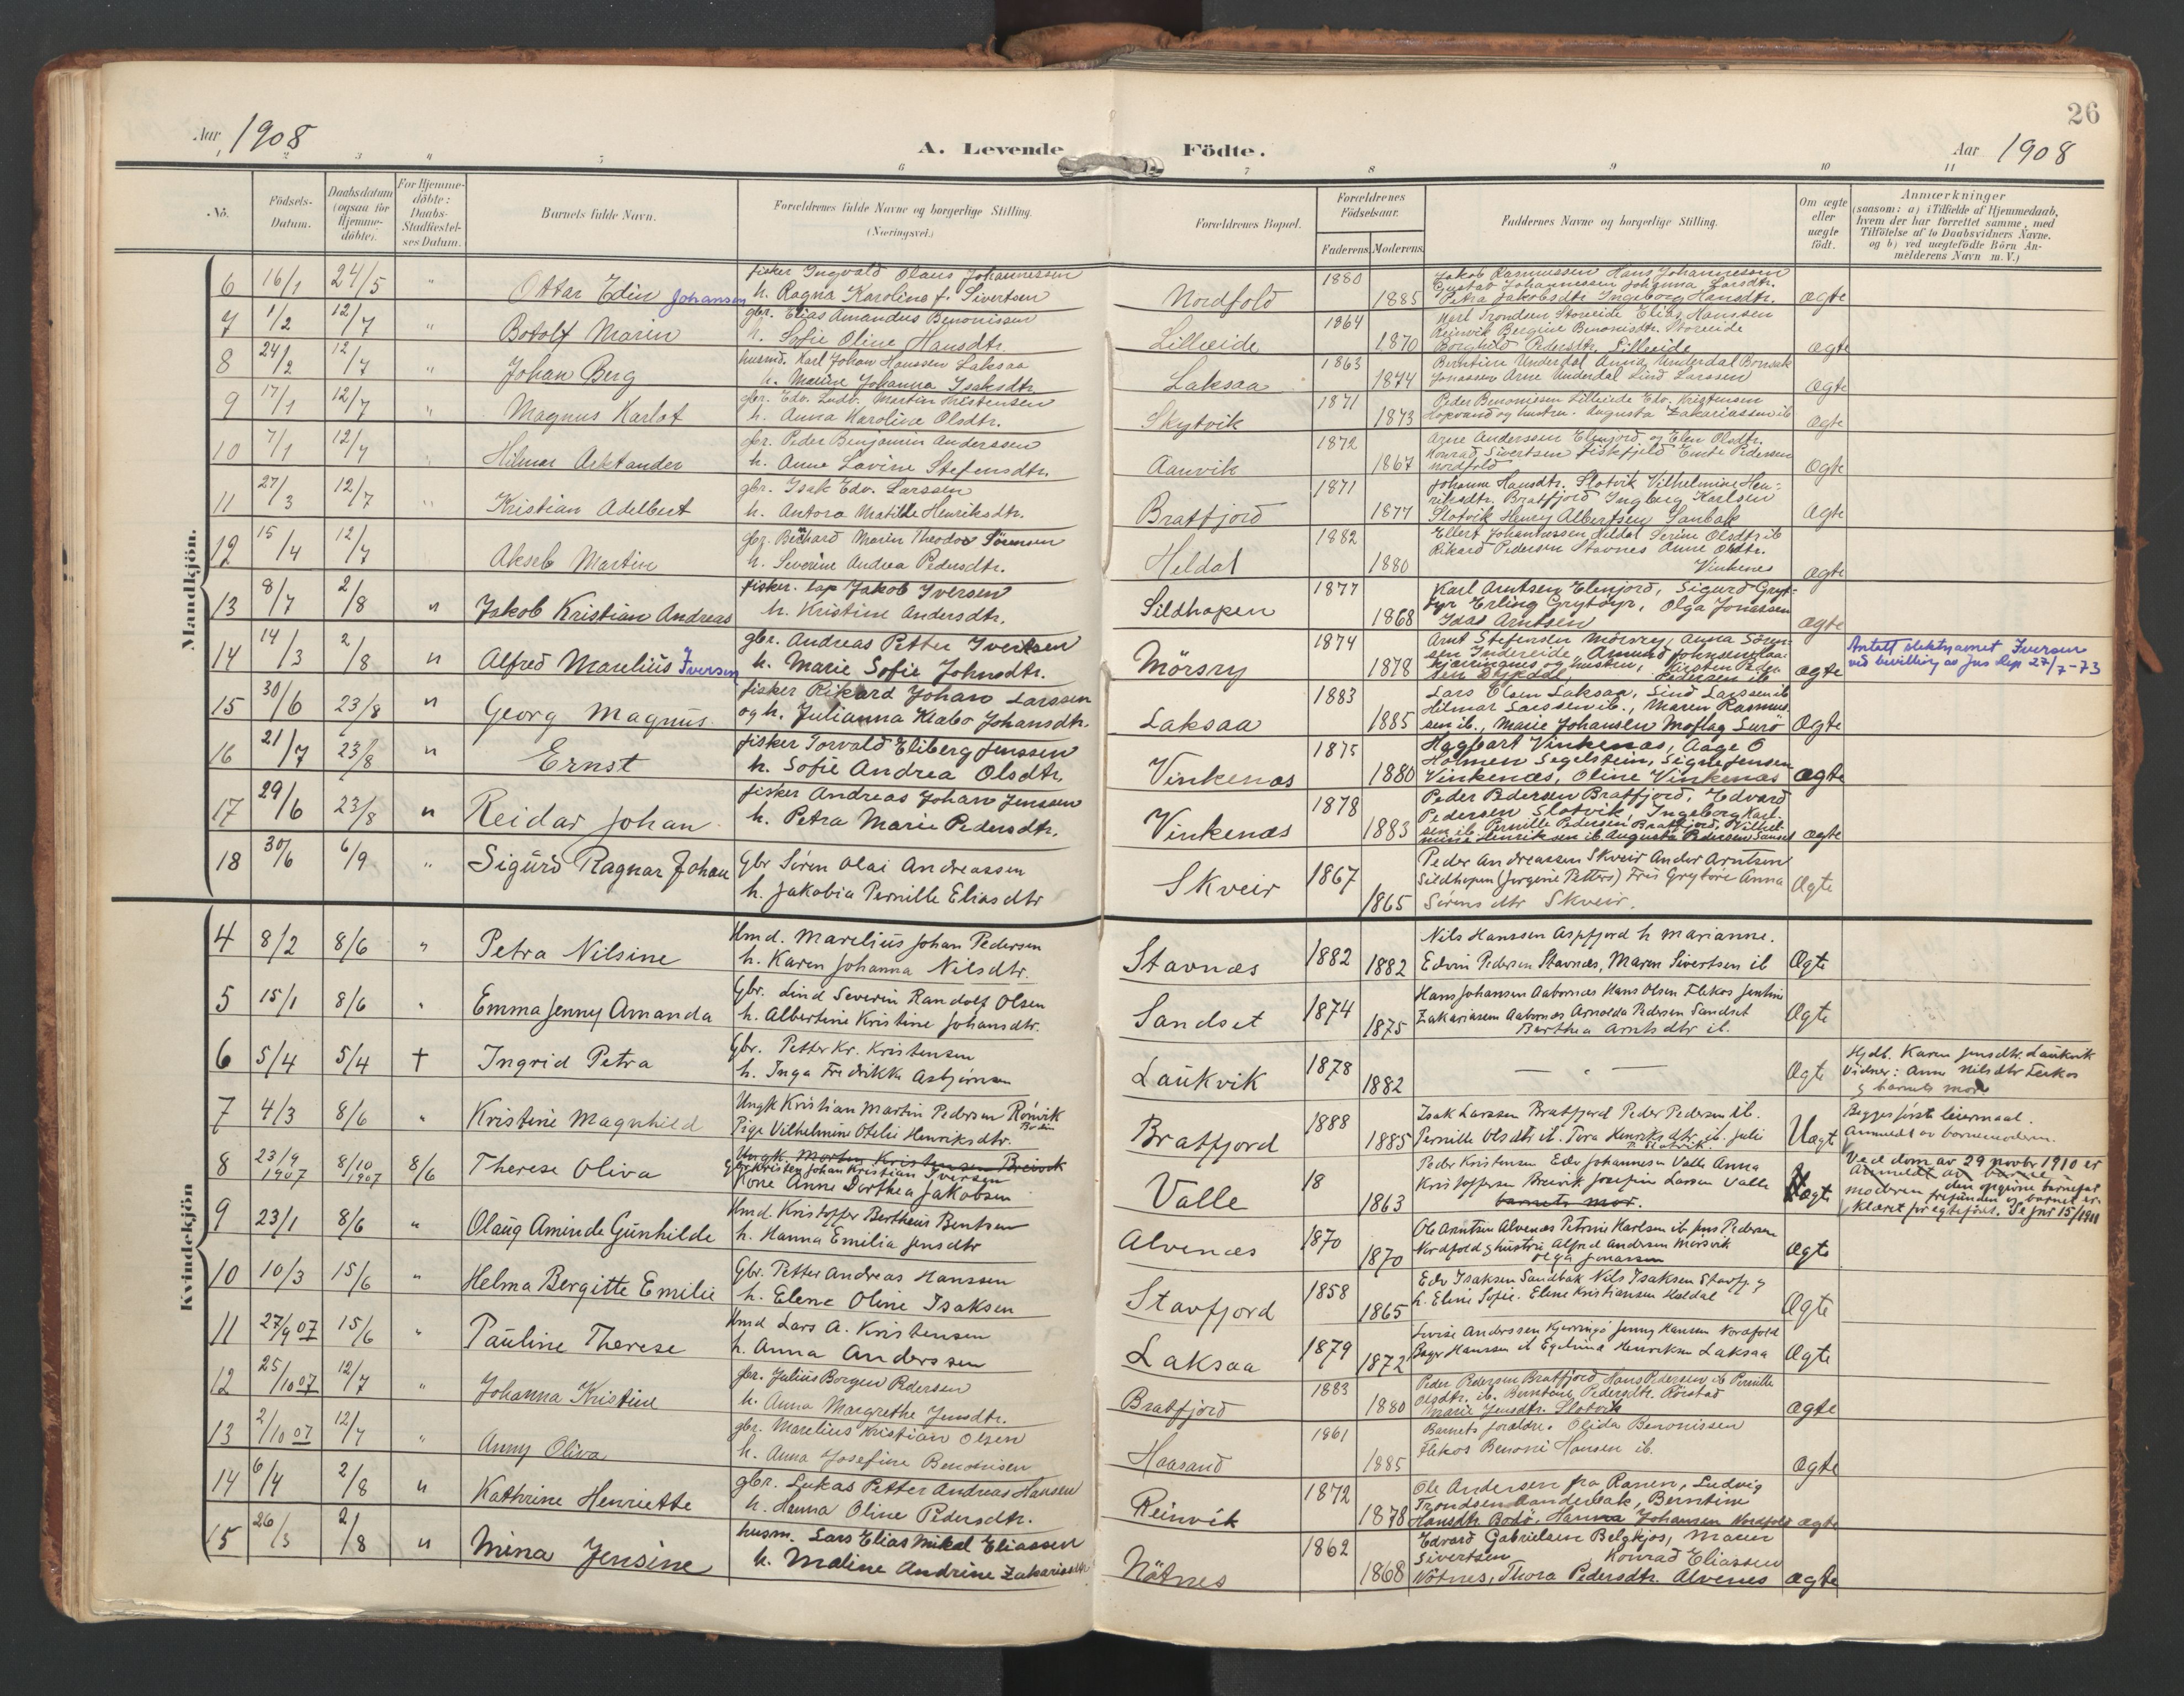 26
Aar 1908
A. Levende Födte.
Aar 1908
2 3 4 5 6 7 8 9 10 11
No.
Födsels-Datum.
Daabsdatum (ogsaa för Hjemme-döbte).
For Hjemme-döbte: Daabs-Stadfæstel-ses Datum.
Barnets fulde Navn.
Forældrenes fulde Navne og borgerlige Stilling. (Næringsvei.)
Forældrenes Bopæl.
Forældrenes Födselsaar.
Faderens. Moderens.
Faddernes Navne og borgerlige Stilling.
Om ægte eller uægte födt.
Anmærkninger
(saasom: a) i Tilfælde af Hjemmedaab,
hvem der har forrettet samme, med
Tilföielse af to Daabsvidners Navne,
og b) ved uægtefödte Börn An-
melderens Navn m.V.)
Mandkjön.
6 16/1 24/5 " Ottar Edin Johansen
fisker Ingvald Olaus Johannessen
h. Ragna Karoline f. Sivertsen
Nordfold 1880 1885
Jakob Rasmussen Hans Johannessen
Gustav Johannessen Johanna Larsdtr.
Petra Jakobsdtr Ingeborg Hansdtr.
ægte
7 1/2 12/7 " Botolf Marin
gbr. Elias Amandus Benonissen
h. Sofie Oline Hansdtr.
Lilleeide 1864 1870
Karl Trondsen Storeide Elias Hanssen
Reinvik Bergine Benonisdtr. Storeide
Borghild Pedersdtr. Lilleeide
ægte
8 24/2 12/7 " Johan Berg
husmd. Karl Johan Hanssen Laksaa
h. Marine Johanna Isaksdtr
Laksaa 1863 1874
Berntine Underdal Anna Underdal
Jonassen Arne Underdal Lind Larssen
ægte
9 17/1 12/7 " Magnus Karlot
gbr. Edv. Ludv. Martin Kristensen
h. Anna Karoline Olsdtr.
Skytvik 1871 1873
Peder Benonissen Lilleeide Edv. Kristensen
Hopvand og hustru. Augusta Zakariassen ib
ægte
10 7/1 12/7 Hilmar Arktander
gbr. Peder Benjamin Anderssen
h. Anne Lovine Stefensdtr.
Aanvik 1872 1867
Arne Anderssen Elvejord, og Elen Olsdtr.
Konrad Sivertsen Fiskfjeld Emte Pedersen
Nordfold
ægte
11 27/3 12/7 " Kristian Adelbert
gbr. Isak Edv. Larssen
h. Antora Matilde Henriksdtr.
Bratfjord 1871 1877
Johanne Hansdtr. Slotvik Vilhelmine Hen-
riksdtr. Bratfjord Ingberg Karlsen
Slotvik Henry Albertsen Sanbak
ægte
12 15/4 12/7 Akseb Martin
gbr. Richard Marin Theodor Sörensen
h. Severine Andrea Pedersdtr.
Heldal 1882 1880
Ellert Johannessen Heldal Serine Olsdtr ib
Rikard Pedersen Stavnes Anne Olsdtr.
Vinkenes
ægte
13 8/7 2/8 " Jakob Kristian Andreas
fisker. lap Jakob Iversen
h. Kristine Andersdtr.
Sildhopen 1877 1868
Karl Arntsen Elvejord, Sigurd Gryt-
öyr Erling Grytöyr, Olga Jonassen
Idar Arntsen
ægte
14 14/3 2/8 " Alfred Marelius Iversen
gbr. Andreas Petter Ivertsen
h. Marie Sofie Johnsdtr.
Mörsry 1874 1878
Arnt Stefensen Mörsry, Anna Sören-
sen Indereide, Amund Johnsen Haa-
kjerringnes og hustru, Kirsten Peder-
sen Dypdal, Pedersen ib
ægte
Antatt slektsnavnet Iversen
ved bevilling av Jus Dep 27/7-73
15 30/6 23/8 " Georg Magnus
fisker Rikard Johan Larssen
og h. Julianna Klabo Johansdtr.
Laksaa 1883 1885
Lars Olsen Laksaa, Lind Larssen ib
Hilmar Larssen ib., Maren Rasmus-
sen ib., Marie Johansen Moflag Lurö
ægte
16 21/7 23/8 " Ernst
fisker Torvald Eliberg Jenssen
h. Sofie Andrea Olsdtr.
Vinkenæs 1875 1880
Hagbart Vinkenæs, Aage O
Holmen Segelstein, Signe Jensen
Vinkenæs, Oline Vinkenæs
ægte
17 29/6 23/8 " Reidar Johan
fisker Andreas Johan Jenssen
h. Petra Marie Pedersdtr.
Vinkenæs 1878 1883
Peder Pedersen Bratfjord, Edvard
Pedersen Slotvik, Ingeborg Karl-
sen ib. Pernille Pedersen, Bratfjord, Vilhel-
mine Henriksen ib. Augusta Pedersen Sanset
ægte
18 30/6 6/9 " Sigurd Ragnar Johan
Gbr Sören Olai Andreassen
h. Jakobia Pernille Eliasdtr
Skveir 1867 1865
Peder Andreassen Skveir Ander Arntsen
Sildhopen (Jorgine Petters) Friis Grytöre Anna
Sörensdtr Skveir.
Ægte
Kvindekjön
4 8/2 8/6 " Petra Nilsine
Hmd. Marelius Johan Pedersen
h. Karen Johanna Nilsdtr.
Stavnæs 1882 1882
Nils Hanssen Aspfjord h Marianne.
Edvin Pedersen Stavnæs, Maren Sivertsen ib
Ægte
5 15/1 8/6 " Emma Jenny Amanda
Gbr. Lind Severin Randolf Olsen
h. Albertine Kristine Johansdtr.
Sandset 1874 1875
Hans Johansen Aabornæs Hans Olsen Flekos Jentine
Zakariasen Aabornæs Arnolda Pedersen Sandset
Berthea Arntsdtr ib.
Ægte
6 5/4 5/4 † Ingrid Petra
Gbr. Petter Kr. Kristensen
h. Inga Fredrikke Asbjörnsen
Laukvik 1878 1882
— " —
Ægte
Hjdb. Karen Jensdtr. Laukvik
Vidner: Anne Nilsdtr Leikos
og barnets mor
7 4/3 8/6 " Kristine Magnhild
Ungk Kristian Martin Pedersen Rönvik
Bodin
Pige Vilhelmine Otelie Henriksdtr.
Bratfjord 1888 1885
Isak Larssen Bratfjord Peder Pedersen ib.
Pernille Olsdtr ib. Tora Henriksdtr. ib. Juli
Slotvik.
Uægte
Begges förste leiermaal.
Anmeldt av barnemoderen.
8 23/9 1907 8/10 1907 8/6 Therese Oliva
Ungk. Morten Kristensen Breivik
Gbr Kristen Johan Kristian Iversen
Kone Anne Dorthea Jakobsen
Valle 18 1863
Peder Kristensen Edv Johannesen Valle Anna
Kristoffersen Breivik Josefine Larsen Valle
barnets mor.
Ægte
Ved dom av 29 novbr 1910 er
Anmeldt av barnets
moderen den opgivne barnefar
frifunden og barnet er-
klæret for egtefödt. Se jnr 15/1911
9 23/1 8/6 " Olaug Aminde Gunhilde
Hmd. Kristoffer Bertheus Bentsen
h. Hanna Emilia Jensdtr
Alvenæs 1870 1870
Ol Arntsen Alvenæs Petrine Karlsen ib Jens Pedersen
Nordfold og hustru Alfred Andersen Mörsvik
Olga Jonassen
Ægte
10 10/3 15/6 " Helma Bergitte Emilie
Gbr. Petter Andreas Hanssen
h. Elene Oline Isaksen
Stavfjord 1858 1865
Edv Isaksen Sandbak Nils Isaksen Stavfj. og
h. Eline Sofie. Elene Kristiansen Heldal
Ægte
11 27/9 07 15/6 " Pauline Therese
Hmd Lars A. Kristensen
h. Anna Anderssen
Laksaa 1879 1872
Lovise Anderssen Kjerringö Jenny Hansen Nordfold
Birger Hanssen ib Egeline Henriksen Laksaa
Ægte
12 25/10 07 12/7 " Johanna Kristine
gbr. Julius Borgen Pedersen
h. Anna Margrethe Jensdtr.
Bratfjord 1883 1880
Peder Pedersen Bratfjord, Hans Pedersen ib Pernille
Olsdtr. ib. Berntine Pedersdtr. Rörstad
Marie Jensdtr. Slotvik
ægte
13 2/10 07 12/7 " Anny Oliva
gbr. Marelius Kristian Olsen
h. Anna Josefine Benonisen
Haasand 1861 1885
Barnets forældre. Olida Benonissen
Flekos Benoni Hansen ib.
ægte
14 6/4 2/8 " Kathrine Henriette
gbr. Lukas Petter Andreas Hansen
h. Hanna Oline Pedersdtr.
Reinvik 1872 1878
Ole Andersen fra Ranen, Ludvig
Trondsen Sanderbak, Berntine
Hansdtr Bodö, Hanna Johansen Nordfold
ægte
15 26/3 2/8 " Mina Jensine
husm. Lars Elias Mikal Eliassen
h. Maline Andrine Zakariasdtr
Nötnes 1862 1868
Edvard Gabrielsen Belgkjos, Maren
Sivertsen Konrad Eliassen
Nötnes, Thora Pedersdtr. Alvenes
ægte